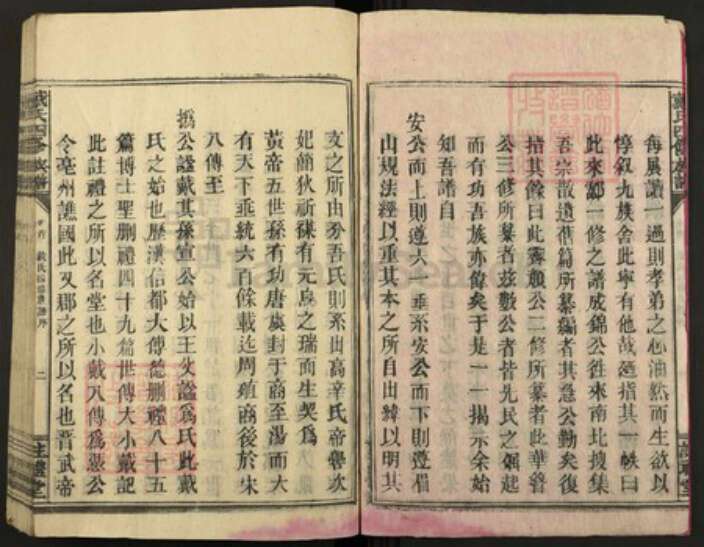 每展讀一過則孝弟之心油然而生欲以
惇叙九族舍此寧有他哉遂指其一帙曰
此來鄒一修之譜成錦公徃來南北搜集
吾宗散遺舊篇所纂編者其急公勤矣復
指其餘曰此霽巖公二修所纂者此華
公三修所纂者茲數公者皆先民之
而有功吾族亦偉矣于是一一揭示余始
知吾譜自
安公而上則遵大一垂系安公而下則遵眉
山規法經以重其本之所自出緯以明其
支之所由分吾氏則系出高辛氏帝嚳次
妃簡狄祈禖有元鳥之瑞而生契爲
黃帝五世孫有功唐虞封于商至湯而大
有天下垂統六百餘載迄周殖商後於宋
八傳至
撝公諡戴其孫宣公始以王父諡爲氏此戴
氏之始也歷漢信都大傳德刪禮八十五
篇博士聖刪禮四十九篇世傳大小戴記
此註禮之所以名堂也小戴八傳爲憑公
令亳州譙國此又郡之所以名也晋武帝
戴氏四修族譜
戴氏四修族譜
卷首
二
註禮堂
註禮堂